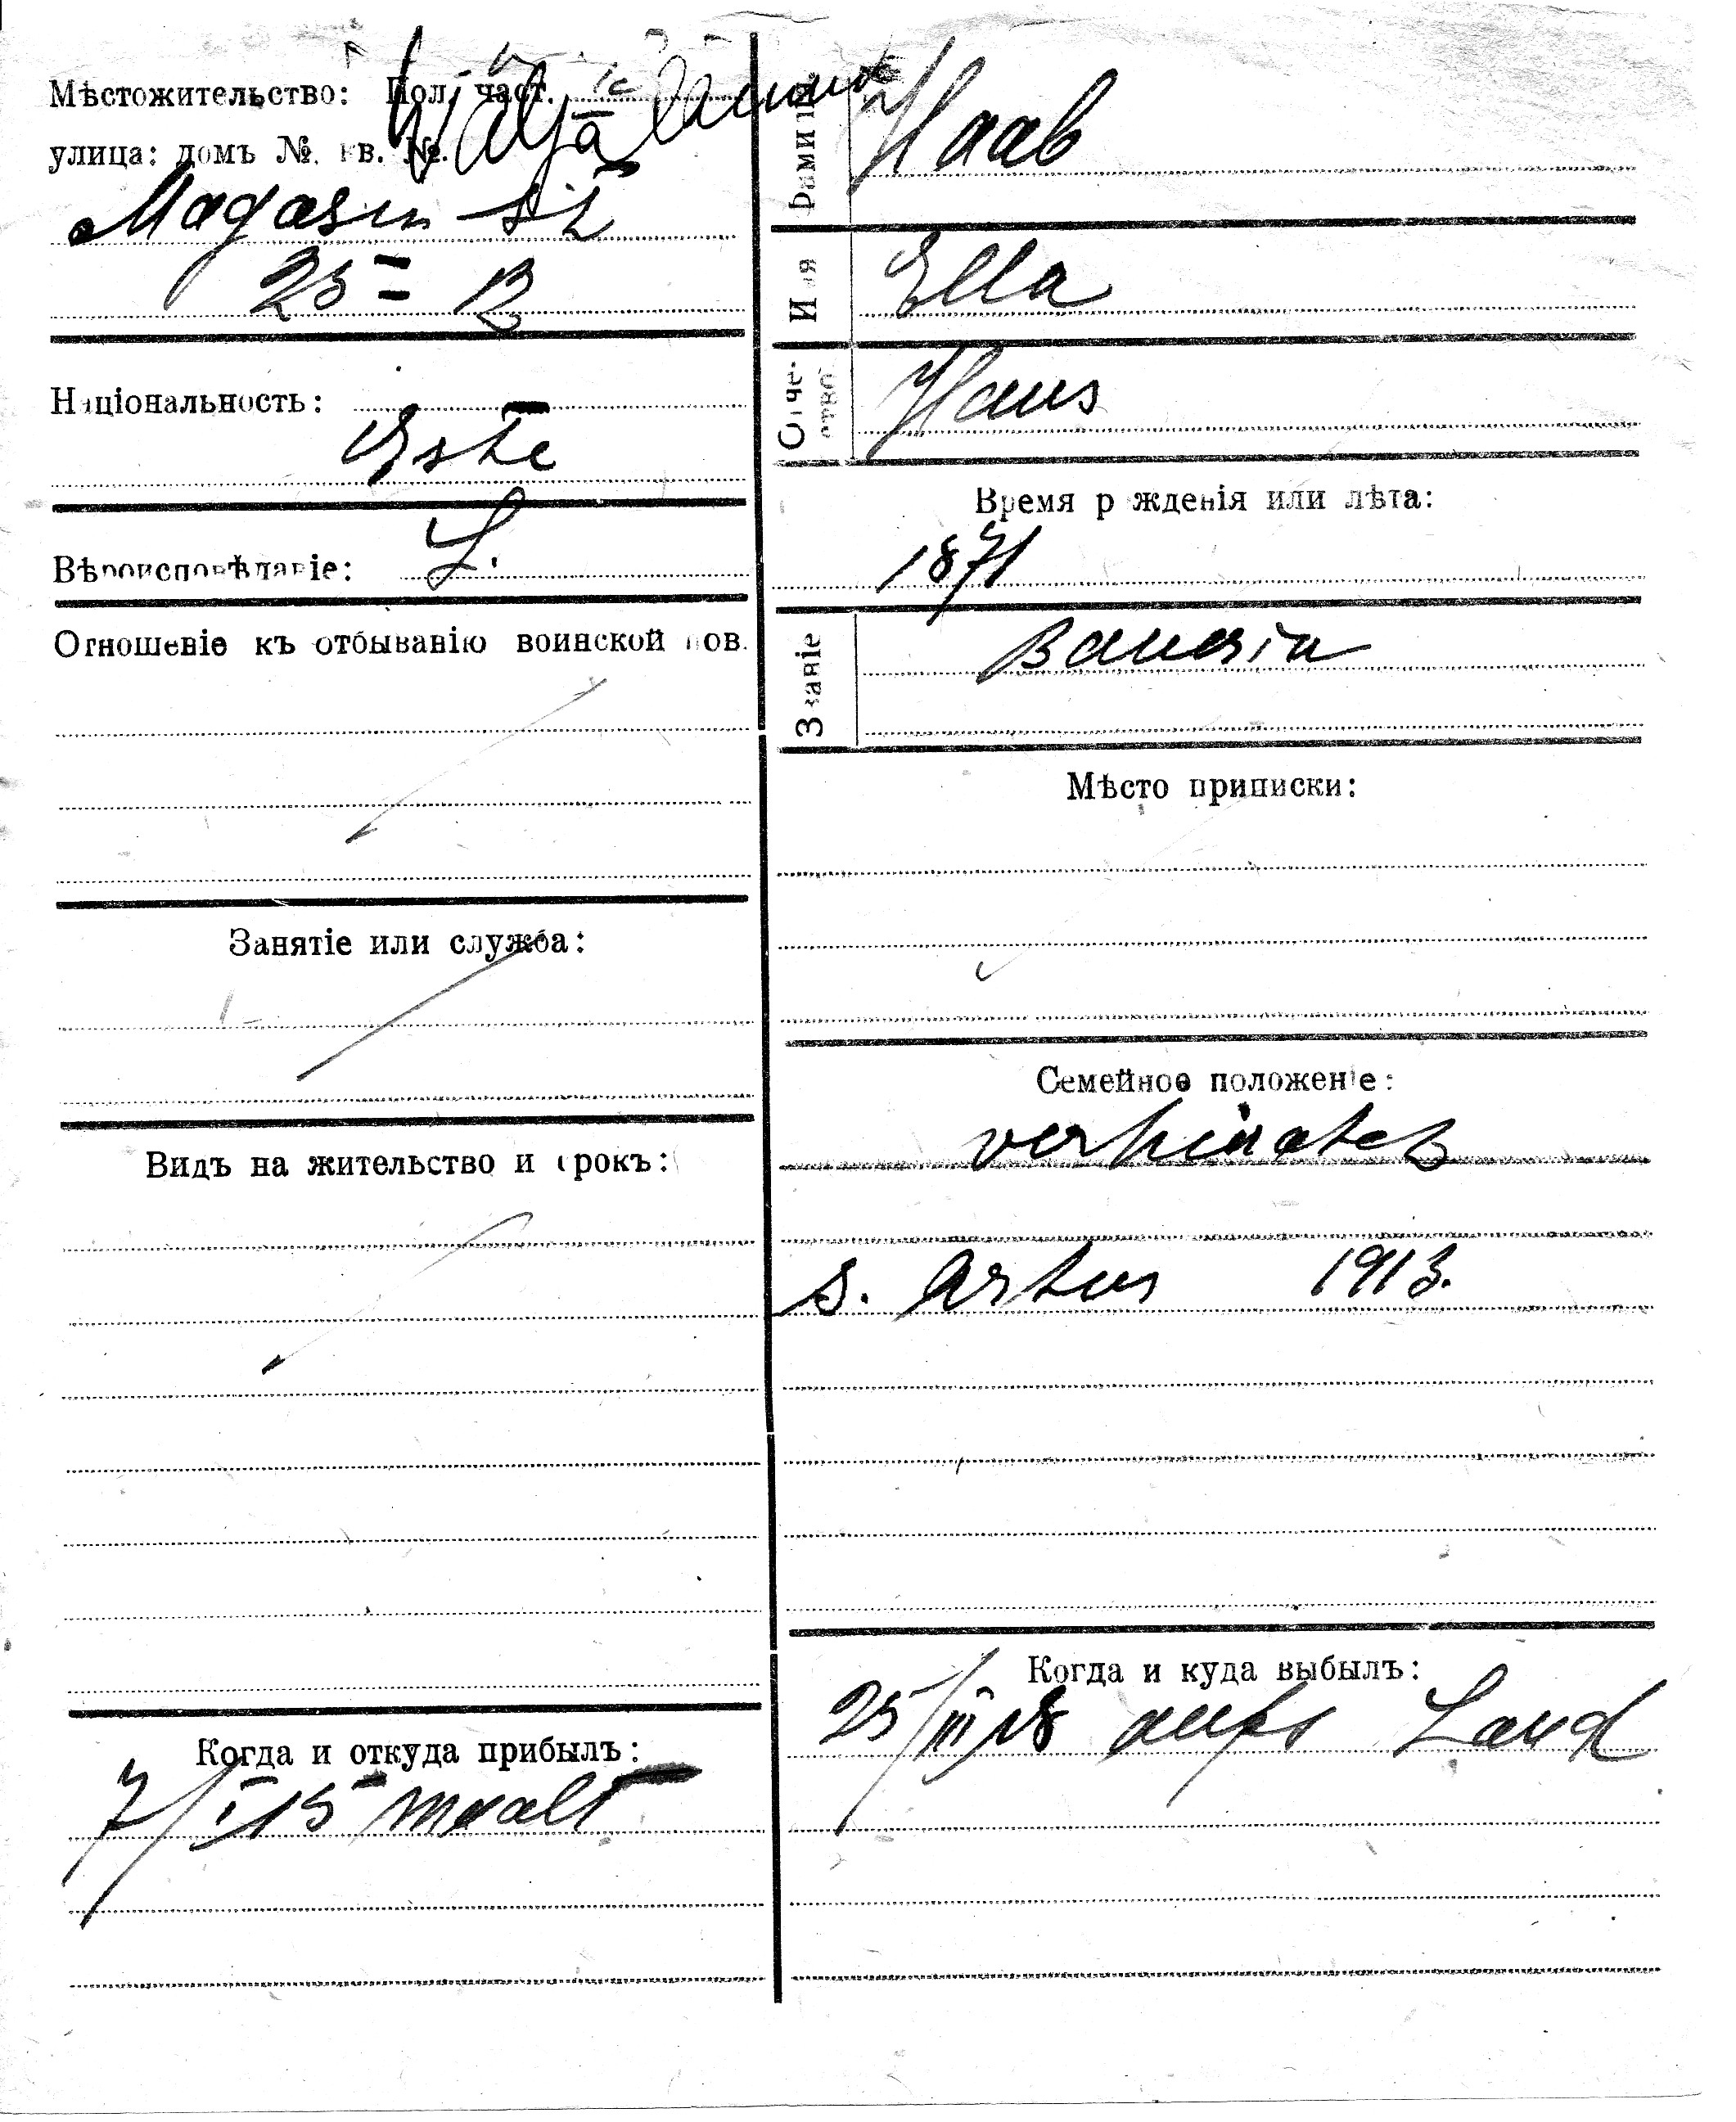 Мѣстожительство: Пол. част.
улица: домъ №. кв. №.
Välja läinud
Magasin str
25 = 12
Національность:
Este
Вѣроисповѣданіе: L.
Отношеніе къ отбыванію воинской пов.
Занятіе или служба:
Видъ на жительство и срокъ:
Когда и откуда прибылъ:
7/I 15
Фамилія
Haab
Имя
Ella
Отче-
ство
Hans
Время рожденія или лѣта:
1871
Званіе
Bauerin
Мѣсто приписки:
Семейное положеніе:
verheiratet
S. Artur 1913.
Когда и куда выбылъ:
25/III 18 aufs Land